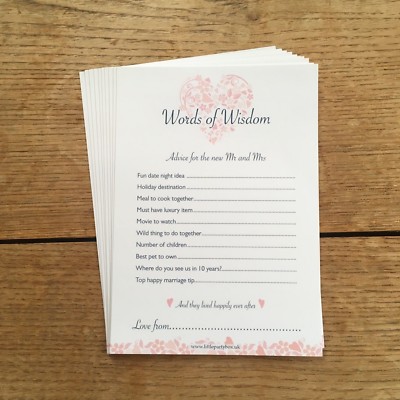 Words of Wisdom
Advice for the new Mr and Mrs
Fun date night idea
Holiday destination
Meal to cook together
Must have luxury item
Movie to watch
Wild thing to do together
Number of children
Best pet to own
Where do you see us in 10 years?
Top happy marriage tip
And they lived happily ever after
Love from
www.littlepartybox.uk